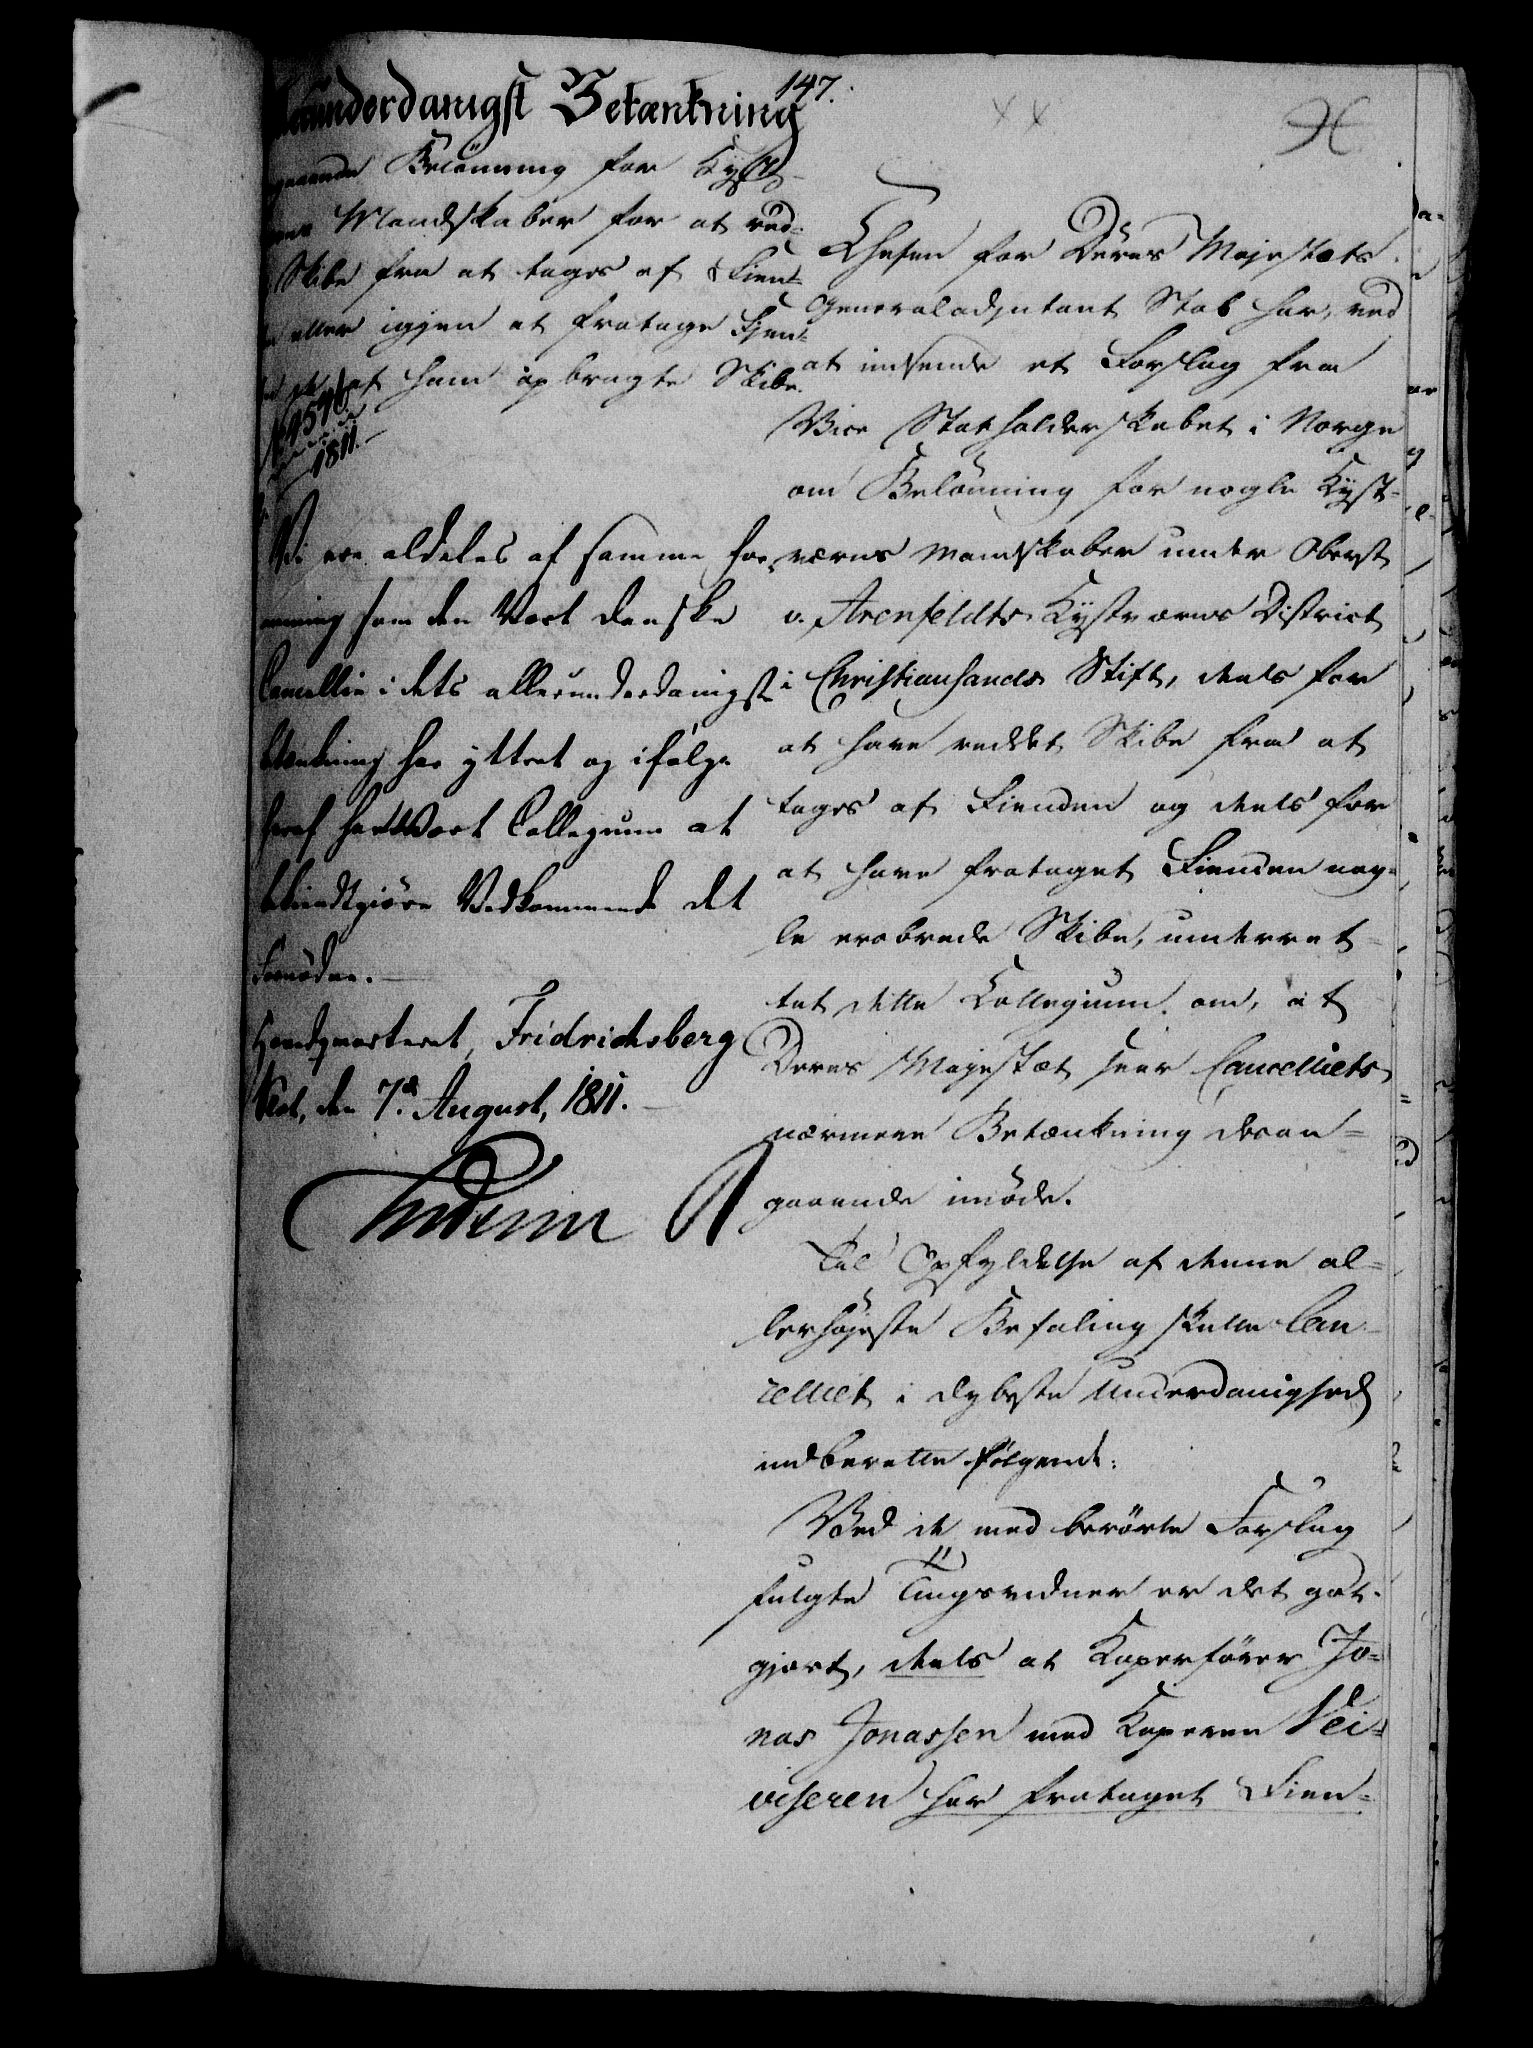 147.
Allerunderdanigst Betænkning
angaaende Belönning for Kyst-
værns Mandskaber for at red-
de Skibe fra at tages af Fien-
den eller igjen at fratage Fjen-
den af ham opbragte Skibe.
1811.
Vi ere aldeles af samme For-
mening som den Vort danske
Cancellie i dets allerunderdanigst
Betænkning har yttret og ifølge
heraf har Vort Collegium at
bekiendtgiöre Vedkommende det
Fornödne.
Hovedqvarteret, Fridrichsberg
Slot, den 7de August, 1811.
Chefen for Deres Majestæts
Generaladjutant Stab har, ved
at indsende et Forslag fra
Vice Statholderskabet i Norge
om Belönning for nogle Kyst-
værns Mandskaber under Oberst
v. Arenfeldts Kystværns District
i Christiansands Stift, deels for
at have reddet Skibe fra at
tages af Fienden og deels for
at have frataget Fienden nog-
le erobrede Skibe, underret-
tet dette Collegium om, at
Deres Majestæt seer Cancelliets
nærmere Betænkning desan-
gaaende imöde.
Til Opfyldelse af denne al-
lerhöjeste Befaling skulle Can-
celliet i dybeste Underdanighed
indberette følgende:
Ved de med berörte Forslag
fulgte Tingsvidner er det got-
gjort, deels at Kaperförer Jo-
nas Jonassen med Kaperen Vei-
viseren har frataget Fien-